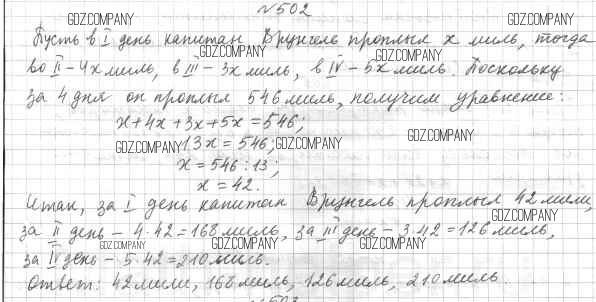 №502
GDZ.COMPANY GDZ.COMPANY
Пусть в I день капитан Врунгель проплыл x миль, тогда
GDZ.COMPANY GDZ.COMPANY
во II – 4x миль, в III – 3x миль, в IV – 5x миль. Поскольку
за 4 дня он проплыл 546 миль, получим уравнение:
x + 4x + 3x + 5x = 546;
GDZ.COMPANY
13x = 546;
GDZ.COMPANY GDZ.COMPANY
x = 546 : 13;
x = 42.
Итак, за I день капитан Врунгель проплыл 42 мили,
за II день – 4·42=168 миль, за III день – 3·42=126 миль,
GDZ.COMPANY GDZ.COMPANY GDZ.COMPANY
за IV день – 5·42=210 миль.
Ответ: 42 мили, 168 миль, 126 миль, 210 миль.
№503